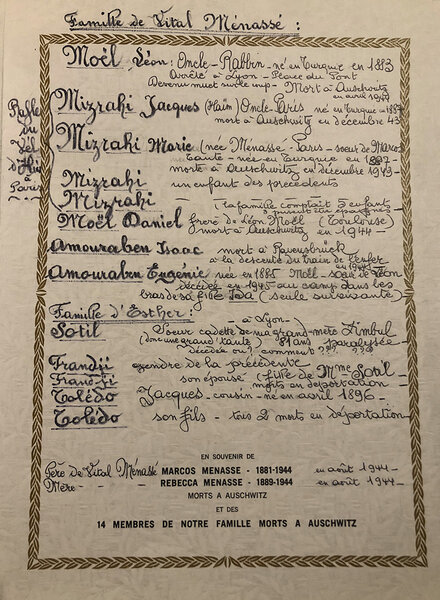 Famille de Vital Ménassé :
Moël Léon : Oncle - Rabbin - né en Turquie en 1883
Arrêté à Lyon - Place du Pont
Devenu muet sur le - Mort à Auschwitz
en 1944
Rafle
du
Vel
d'Hiv
à
Paris
Mizrahi Jacques (Haïm) Oncle-Paris né en Turquie - 1887
mort à Auschwitz en décembre 43
Mizrahi Marie (née Menasse - Paris - soeur de Marcos
Tante - née en Turquie en 1897 -
morte à Auschwitz en décembre 1943 -
Mizrahi un enfant des précédents
Mizrahi (la famille comptait 5 enfants
3 purent
Moël Daniel frère de Léon Moël (Toulouse)
mort à Auschwitz en 1944 -
Amouraben Isaac mort à Ravensbrück
à la descente du train de l'enfer
en
Amouraben Eugénie née en 1885 Moël - soeur de Léon
décédée en 1945 au camp dans les
bras de sa fille Ida (seule survivante)
Famille d'Esther : - à Lyon -
Sotil Soeur cadette de ma grand-mère Zimbul
(donc une grand'tante) 81 ans paralysée
Décédée où ? comment ? ? ? ? ?
Frandji gendre de la précédente
Frandji son épouse (fille de Mme Sotil
morts en déportation -
Tolédo Jacques - cousin - né en avril 1896 -
Tolédo son fils - tous 2 morts en déportation
EN SOUVENIR DE
Père de Vital Ménassé MARCOS MENASSE - 1881-1944 en août 1944 -
Mère - REBECCA MENASSE - 1889-1944 en août 1944 -
MORTS A AUSCHWITZ
ET DES
14 MEMBRES DE NOTRE FAMILLE MORTS A AUSCHWITZ